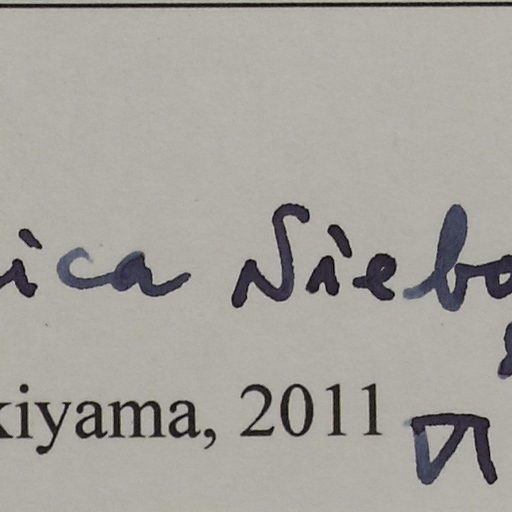 ica Niebo
kiyama, 2011